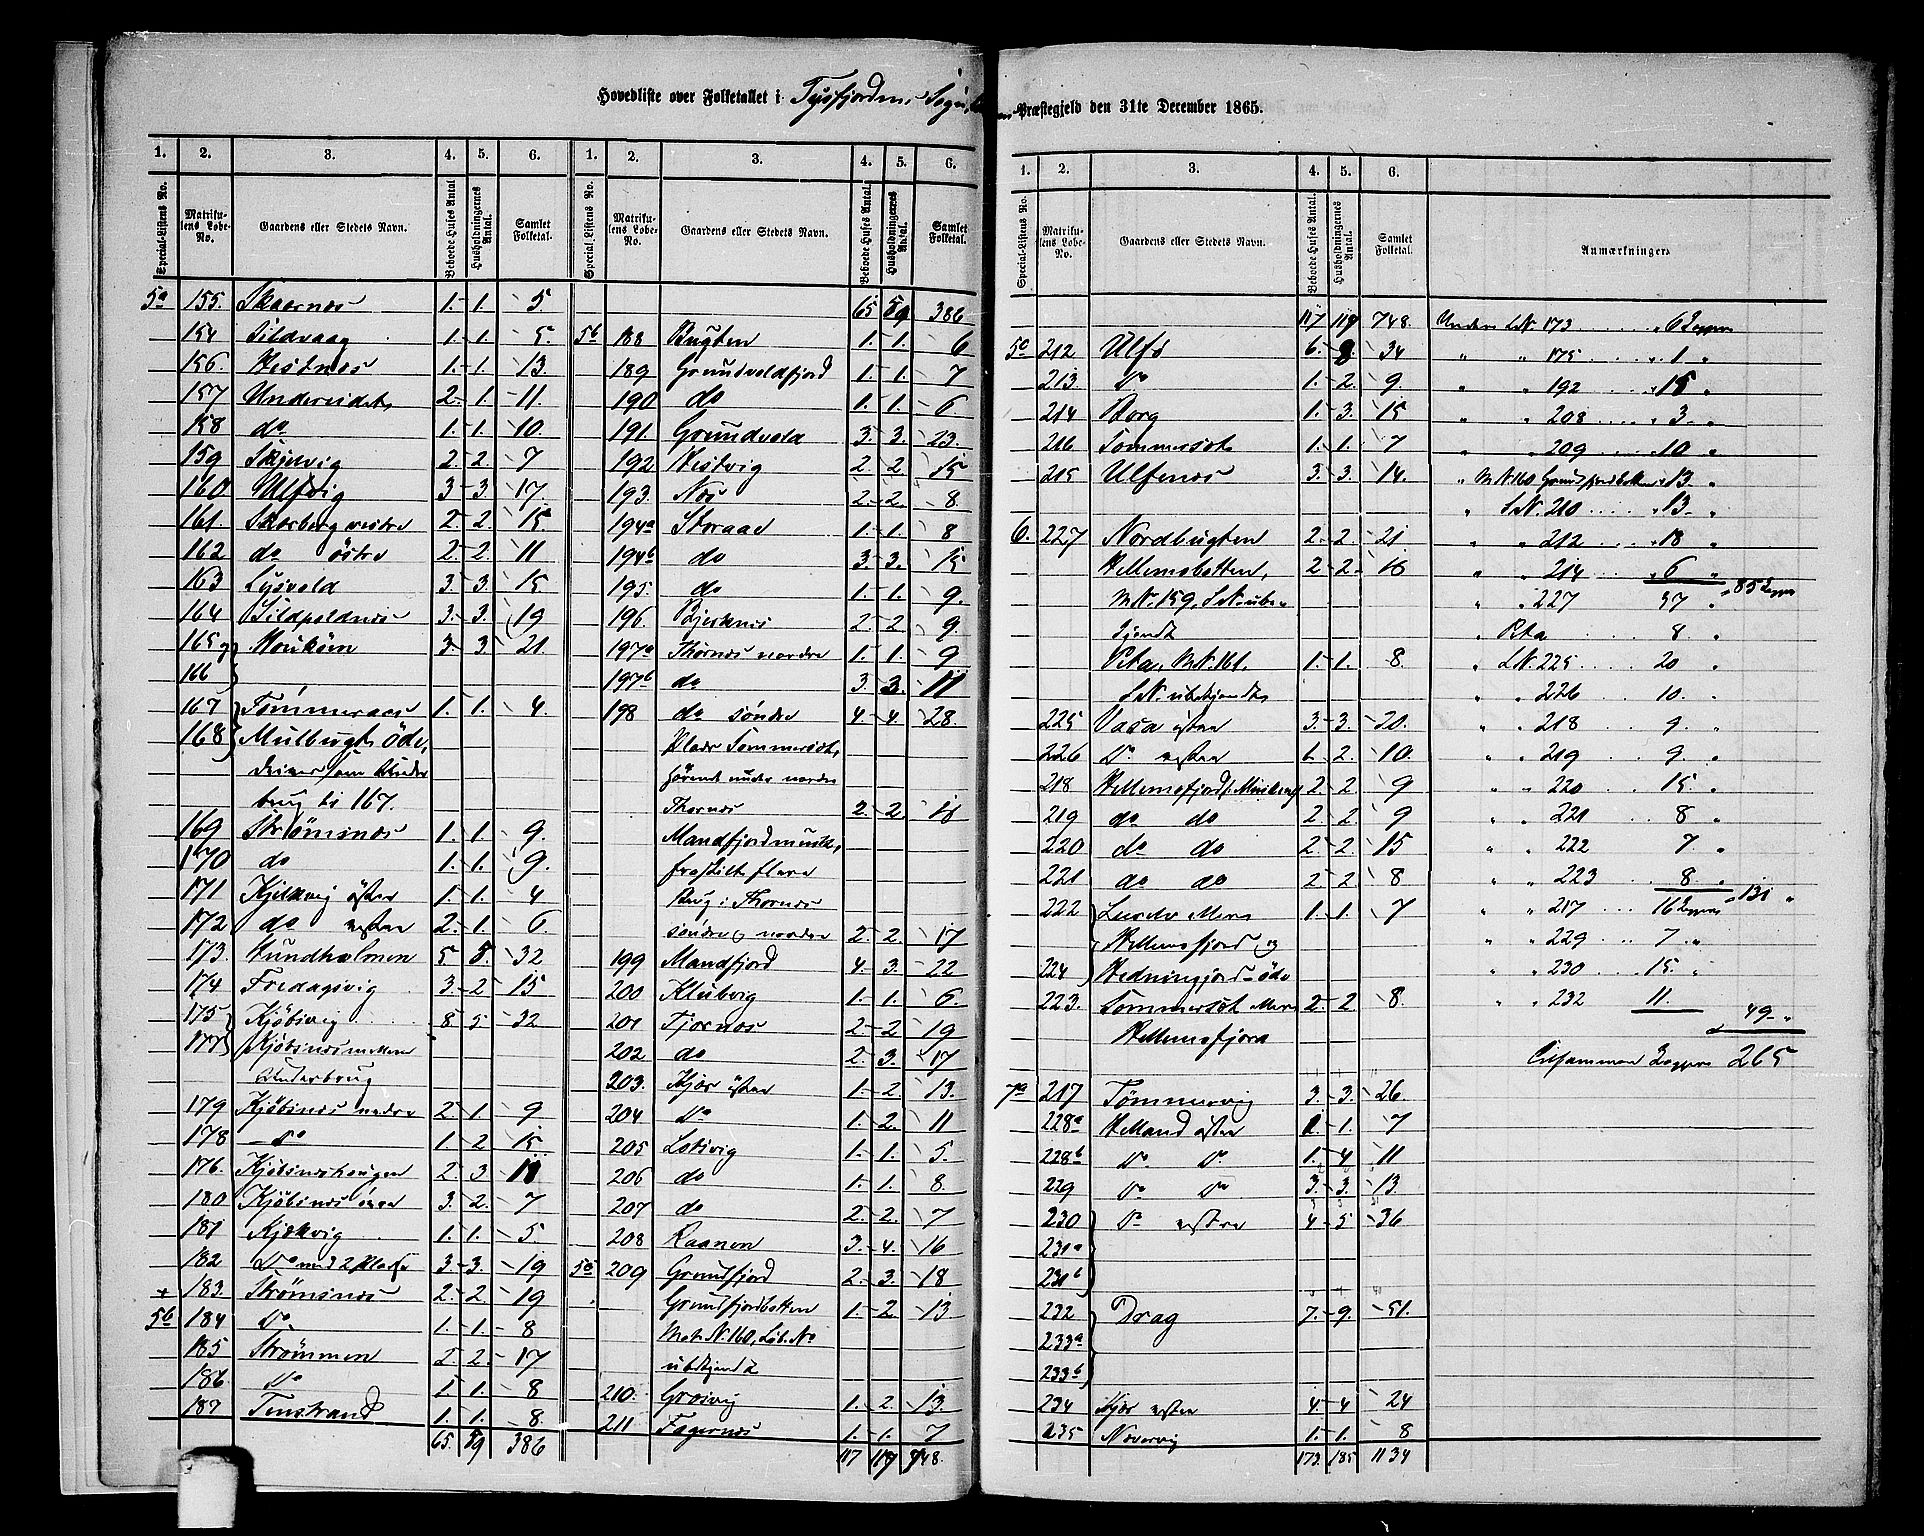 Hovedliste over Folketallet i Tysfjordens Sogn,
Præstegjeld den 31te December 1865.
1. 2. 3. 4. 5. 6. 1. 2. 3. 4. 5. 6.
Special-Listens No. Matrikulens Løbe-No. Gaardens eller Stedets Navn. Beboede Huses Antal Husholdningernes Antal. Samlet Folketal. Special-Listens No. Matrikulens Løbe-No. Gaardens eller Stedets Navn. Beboede Huses Antal. Husholdningernes Antal. Samlet Folketal.
5a 155. Skaarnes 1. 1. 5.
154 Sildvaag 1. 1. 5.
156. Hestnes 1. 1. 13.
157 Undereidet 2. 1. 11.
158 do 1. 1. 10.
159 Skjelvig 2. 2. 7
160 Ulfvig 3. 3. 17.
161. Skarberg vestre 2. 2. 15
162 do östre 2. 2. 11
163 Lysvold 3. 3. 15
164 Sildpoldnes 3. 3. 19
165 og Haukøen 3 3 21
166
167 Tømmeraas 1. 1. 4.
168 Mulbugt öde,
drives som Under
brug til 167.
169 Strømsnes 1. 1. 9.
170 do 1. 1. 9.
171 Kjelkvig östre 1. 1. 4
172 do vestre 2. 1. 6.
173. Hundholmen 5 5. 32
174 Fredagsvig 3. 2 15
175 Kjöbsvig 8 5. 32
177 Kjöbsnes mellem
Underbrug
179 Kjöbsnes nedre 2 1. 9
178 Do 1. 2 15
176. Kjöbsneshaugen 2 3 11
180 Kjöbsnes övre 3. 2. 7
181 Kjelkvig 1. 1. 5
182 Do med 2 Pladse 3. 3. 19
+ 183. Strömsnes 2. 2. 19
5b 184 Do 1. 1. 8
185 Strömmen 2. 2. 17
186 Do 1 1. 8
187 Tinstrand 1. 1. 8.
65. 59 386
65 59 386
5b 188 Bugten 1. 1. 6
189 Grundvoldfjord 1. 1. 7
190 do 1. 1. 6
191. Grundvold 3. 3. 23.
192 Hestvig 2. 2 15
193. Nes 2. 2. 8.
194a Storaae 1. 1. 8
194b do 3. 3. 15
195. do 1. 1. 9.
196. Bjerknes 2. 2 9.
197a Thornes nordre 1. 1. 9
197b do 3. 3. 11
198 do söndre 4. 4. 28.
Plads Sommerset,
hörende under nordre
Thornes 2. 2 18
Mandfjord
söndre og nordre 2. 2. 17
199 Mandfjord 4. 3. 22
200 Klubvig 1. 1. 6.
201 Fjornes 2. 2. 19
202 do 2. 3. 17
203. Kjær östre 1. 2. 13.
204 Do 1. 2. 11
205 Lotsvig 1. 1. 5.
206 do 1. 1. 8.
207 do 2. 2. 7
208 Raanen 3. 4. 16
5c 209 Grundfjord 2. 3. 18
Grundfjordbotten 1. 2. 13
Mat. N. 160, Löb. No
ubekjendt
210. Græsvig 1. 2. 13.
211 Fagernes 1. 1. 7
117 119 748.
1. 2. 3. 4. 5. 6.
Special-Listens No. Matrikulens Løbe-No. Gaardens eller Stedets Navn. Beboede Huses Antal. Husholdningernes Antal. Samlet Folketal. Anmærkninger
117 119 748. Under L.N. 173 6 Lapper
5c 212 Ulfs 6. 8. 34 " " 175 1 "
213. Do 1. 2. 9. " " 192 15 "
214 Borg 1. 3. 15 " " 208 3 "
216 Sommerset 1. 1. 7 " " 209 10 "
215 Ulfsnes 3. 3. 14. " M.N. 160 Grundfjordbotten 13. "
" L.N. 210 13 "
6. 227 Nordbugten 2. 2 21 " " 212 18 "
Hellemobotten, 2 2. 18 " " 214 6 " 85 Lapper
M.N. 159, L.N. ube-
kjendt
" " 227 37 "
" Peta 8 "
Peta, M.N. 161. 1. 1. 8. " L.N. 225 20 "
L.N. ubekjendt " " 226 10. "
225 Vasa östre 3. 3. 20. " " 218 9. "
226 Do vestre 2. 10. " " 219 9. "
218 Hellemofjord 2 2 9 " " 220 15. "
219 do do 2. 2. 9 " " 221 8 "
220 do do 2 2. 15 " " 222 7. "
221 do do 2 2 8 " " 223 8. " 131 "
222 1. 1. 7 " " 217 16 Lapper
Hellemofjord og " " 229 7. "
224 öde " " 230 15. "
223. Sommerset 2 2. 8. " " 232 11. 49 "
Hellemofjord
Tilsammen Lapper 265
7a 217 Tömmervig 3. 3. 26.
228a Helland östre 1 1. 7
228b Do. Do. 1. 4. 11
229 Do Do 3. 3. 13.
230 Do vestre 4. 5. 36
231a
231b
232 Drag 7. 9. 51.
233a
233b
234 Kjær vestre 4. 4 24
235 Nævervig 1. 1. 8
173. 185 1134